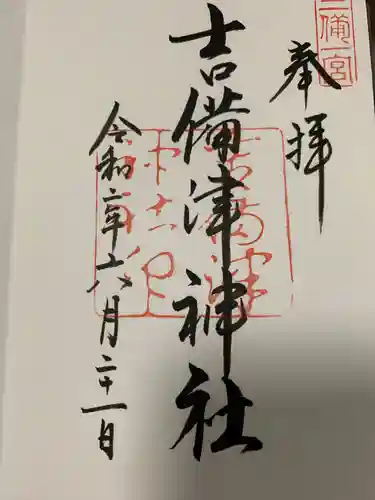 三備一宮
奉拝
吉備津神社
令和二年六月二十一日